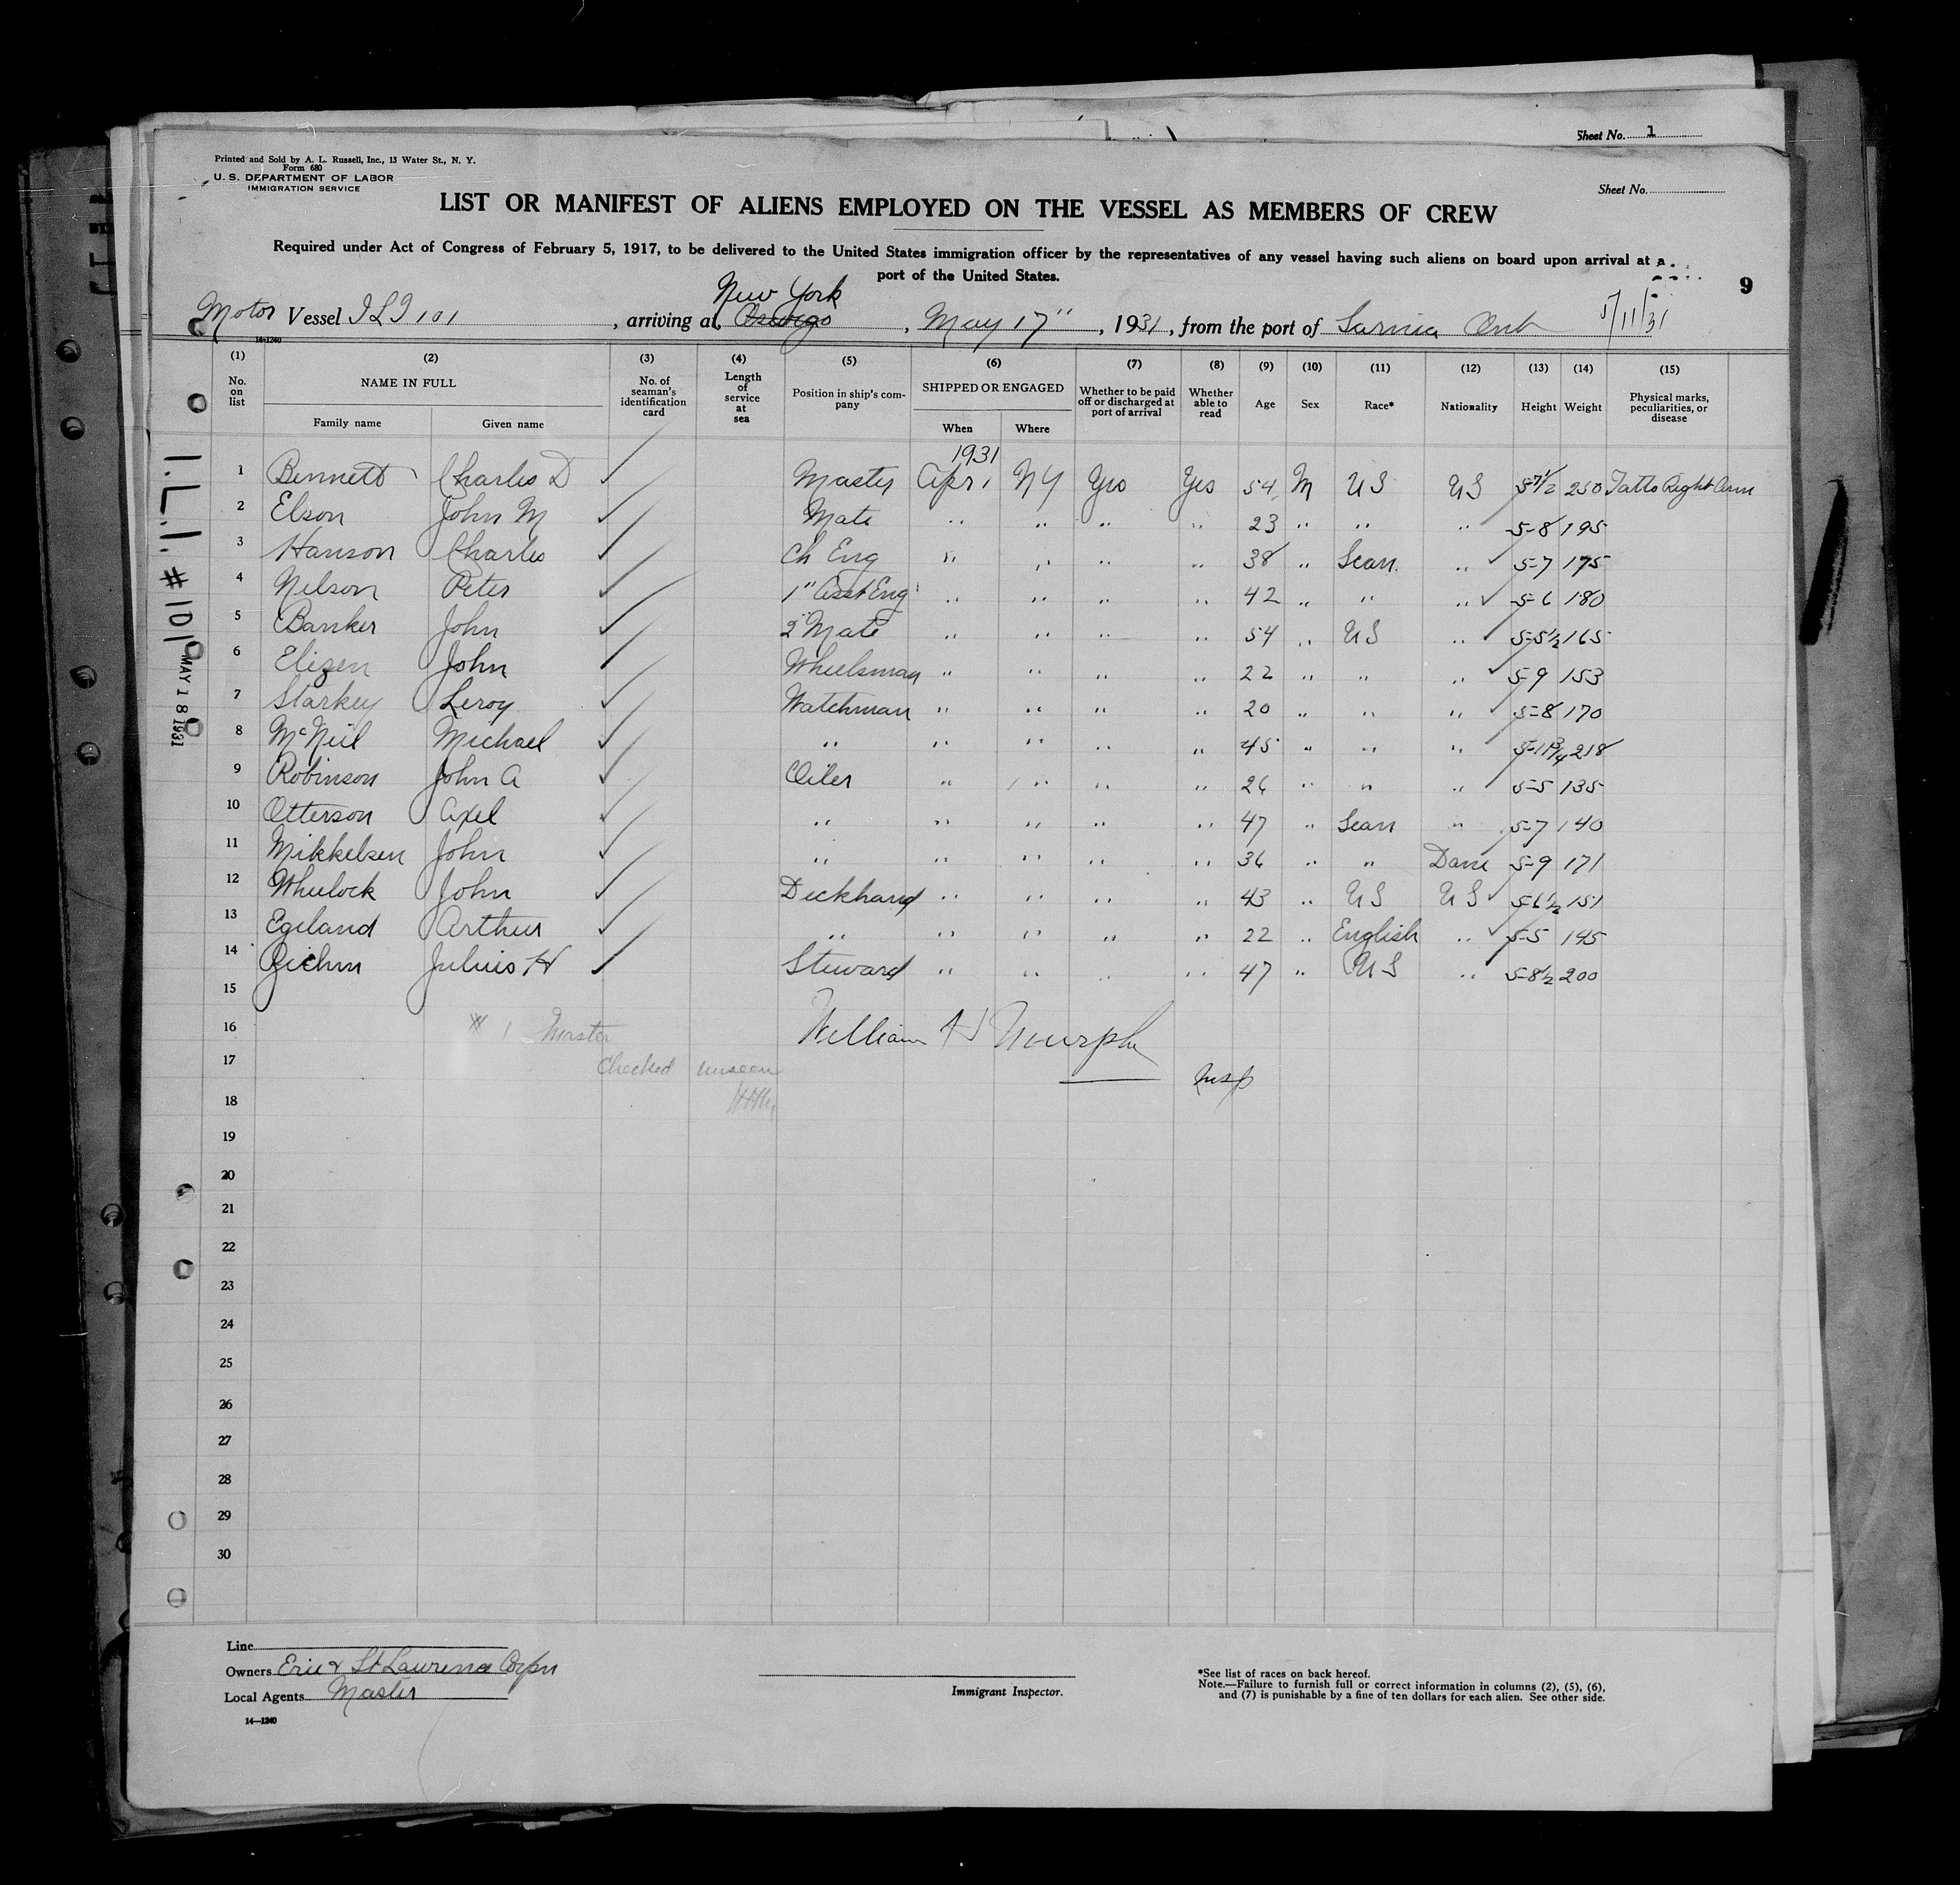 Sheet No. 1
Printed and Sold by A. L. Russell, Inc., 13 Water St., N. Y.
Form 680
U. S. DEPARTMENT OF LABOR
IMMIGRATION SERVICE
Sheet No.
LIST OR MANIFEST OF ALIENS EMPLOYED ON THE VESSEL AS MEMBERS OF CREW
Required under Act of Congress of February 5, 1917, to be delivered to the United States immigration officer by the representatives of any vessel having such aliens on board upon arrival at a
port of the United States.
9
New York
Motor Vessel ILI 101, arriving at Oswego, May 17", 1931, from the port of Sarnia Ont 5/11/31
14-1240
(1) (2) (3) (4) (5) (6) (7) (8) (9) (10) (11) (12) (13) (14) (15)
No. on list NAME IN FULL No. of seaman's identification card Length of service at sea Position in ship's company SHIPPED OR ENGAGED Whether to be paid off or discharged at port of arrival Whether able to read Age Sex Race* Nationality Height Weight Physical marks, peculiarities, or disease
Family name Given name When Where
1931
1 Bennett Charles D ✓ Master Apr 1 NY Yes Yes 54 M US US 5-7 1/2 250 Tatto Right Arm
2 Elson John M ✓ Mate " " " " 23 " " " 5-8 195
3 Hanson Charles ✓ Ch Eng " " " " 38 " Scan. " ✓ 5-7 175
4 Nelson Peter ✓ 1" Asst Eng " " " " 42 " " " ✓ 5-6 180
5 Banker John ✓ 2" Mate " " " " 54 " US " ✓ 5-5 1/2 165
6 Elizen John ✓ Wheelsman " " " " 22 " " " ✓ 5-9 153
7 Starkey Leroy ✓ Watchman " " " " 20 " " " ✓ 5-8 170
8 McNeil Michael ✓ " " " " " 45 " " " ✓ 5-11 3/4 218
9 Robinson John A ✓ Oiler " " " " 26 " " " 5-5 135
10 Otterson Axel ✓ " " " " " 47 " Scan " 5-7 140
11 Mikkelsen John ✓ " " " " " 36 " " Dane 5-9 171
12 Wheelock John ✓ Deckhand " " " " 43 " US US ✓ 5-6 1/2 151
13 Egeland Arthur ✓ " " " " " 22 " English " ✓ 5-5 145
14 Ziehm Julius H ✓ Steward " " " " 47 " US " 5-8 1/2 200
15
16 # 1 Master William H Murphy
17 Checked unseen Insp
18
19
20
21
22
23
24
25
26
27
28
29
30
I.L.I. #101
MAY 18 1931
Line
Owners Erie & St Laurence Corpn
Local Agents Master
14-1240
Immigrant Inspector.
*See list of races on back hereof.
Note.—Failure to furnish full or correct information in columns (2), (5), (6),
and (7) is punishable by a fine of ten dollars for each alien. See other side.